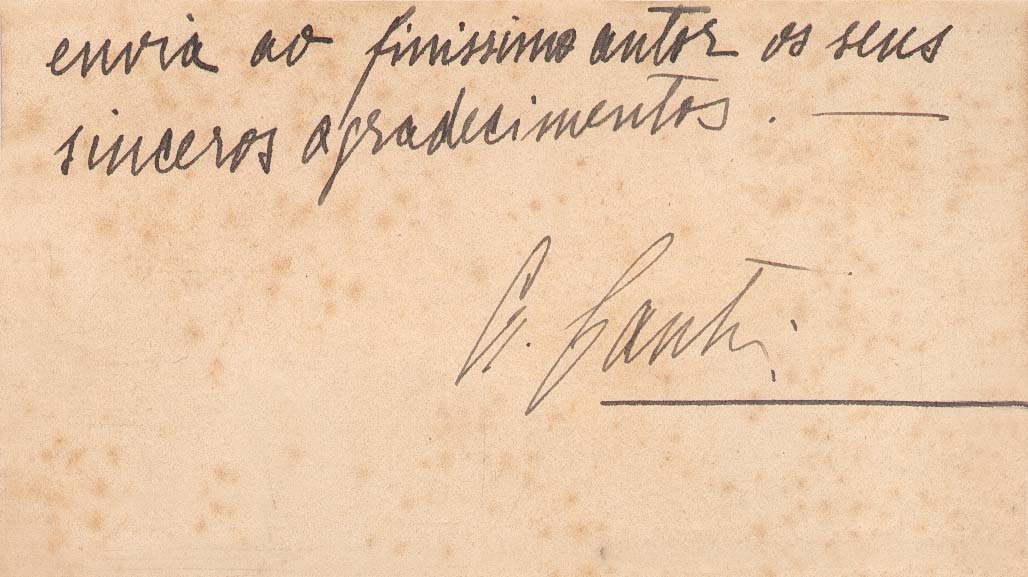 envia ao finissimo autor os seus
sinceros agradecimentos. —